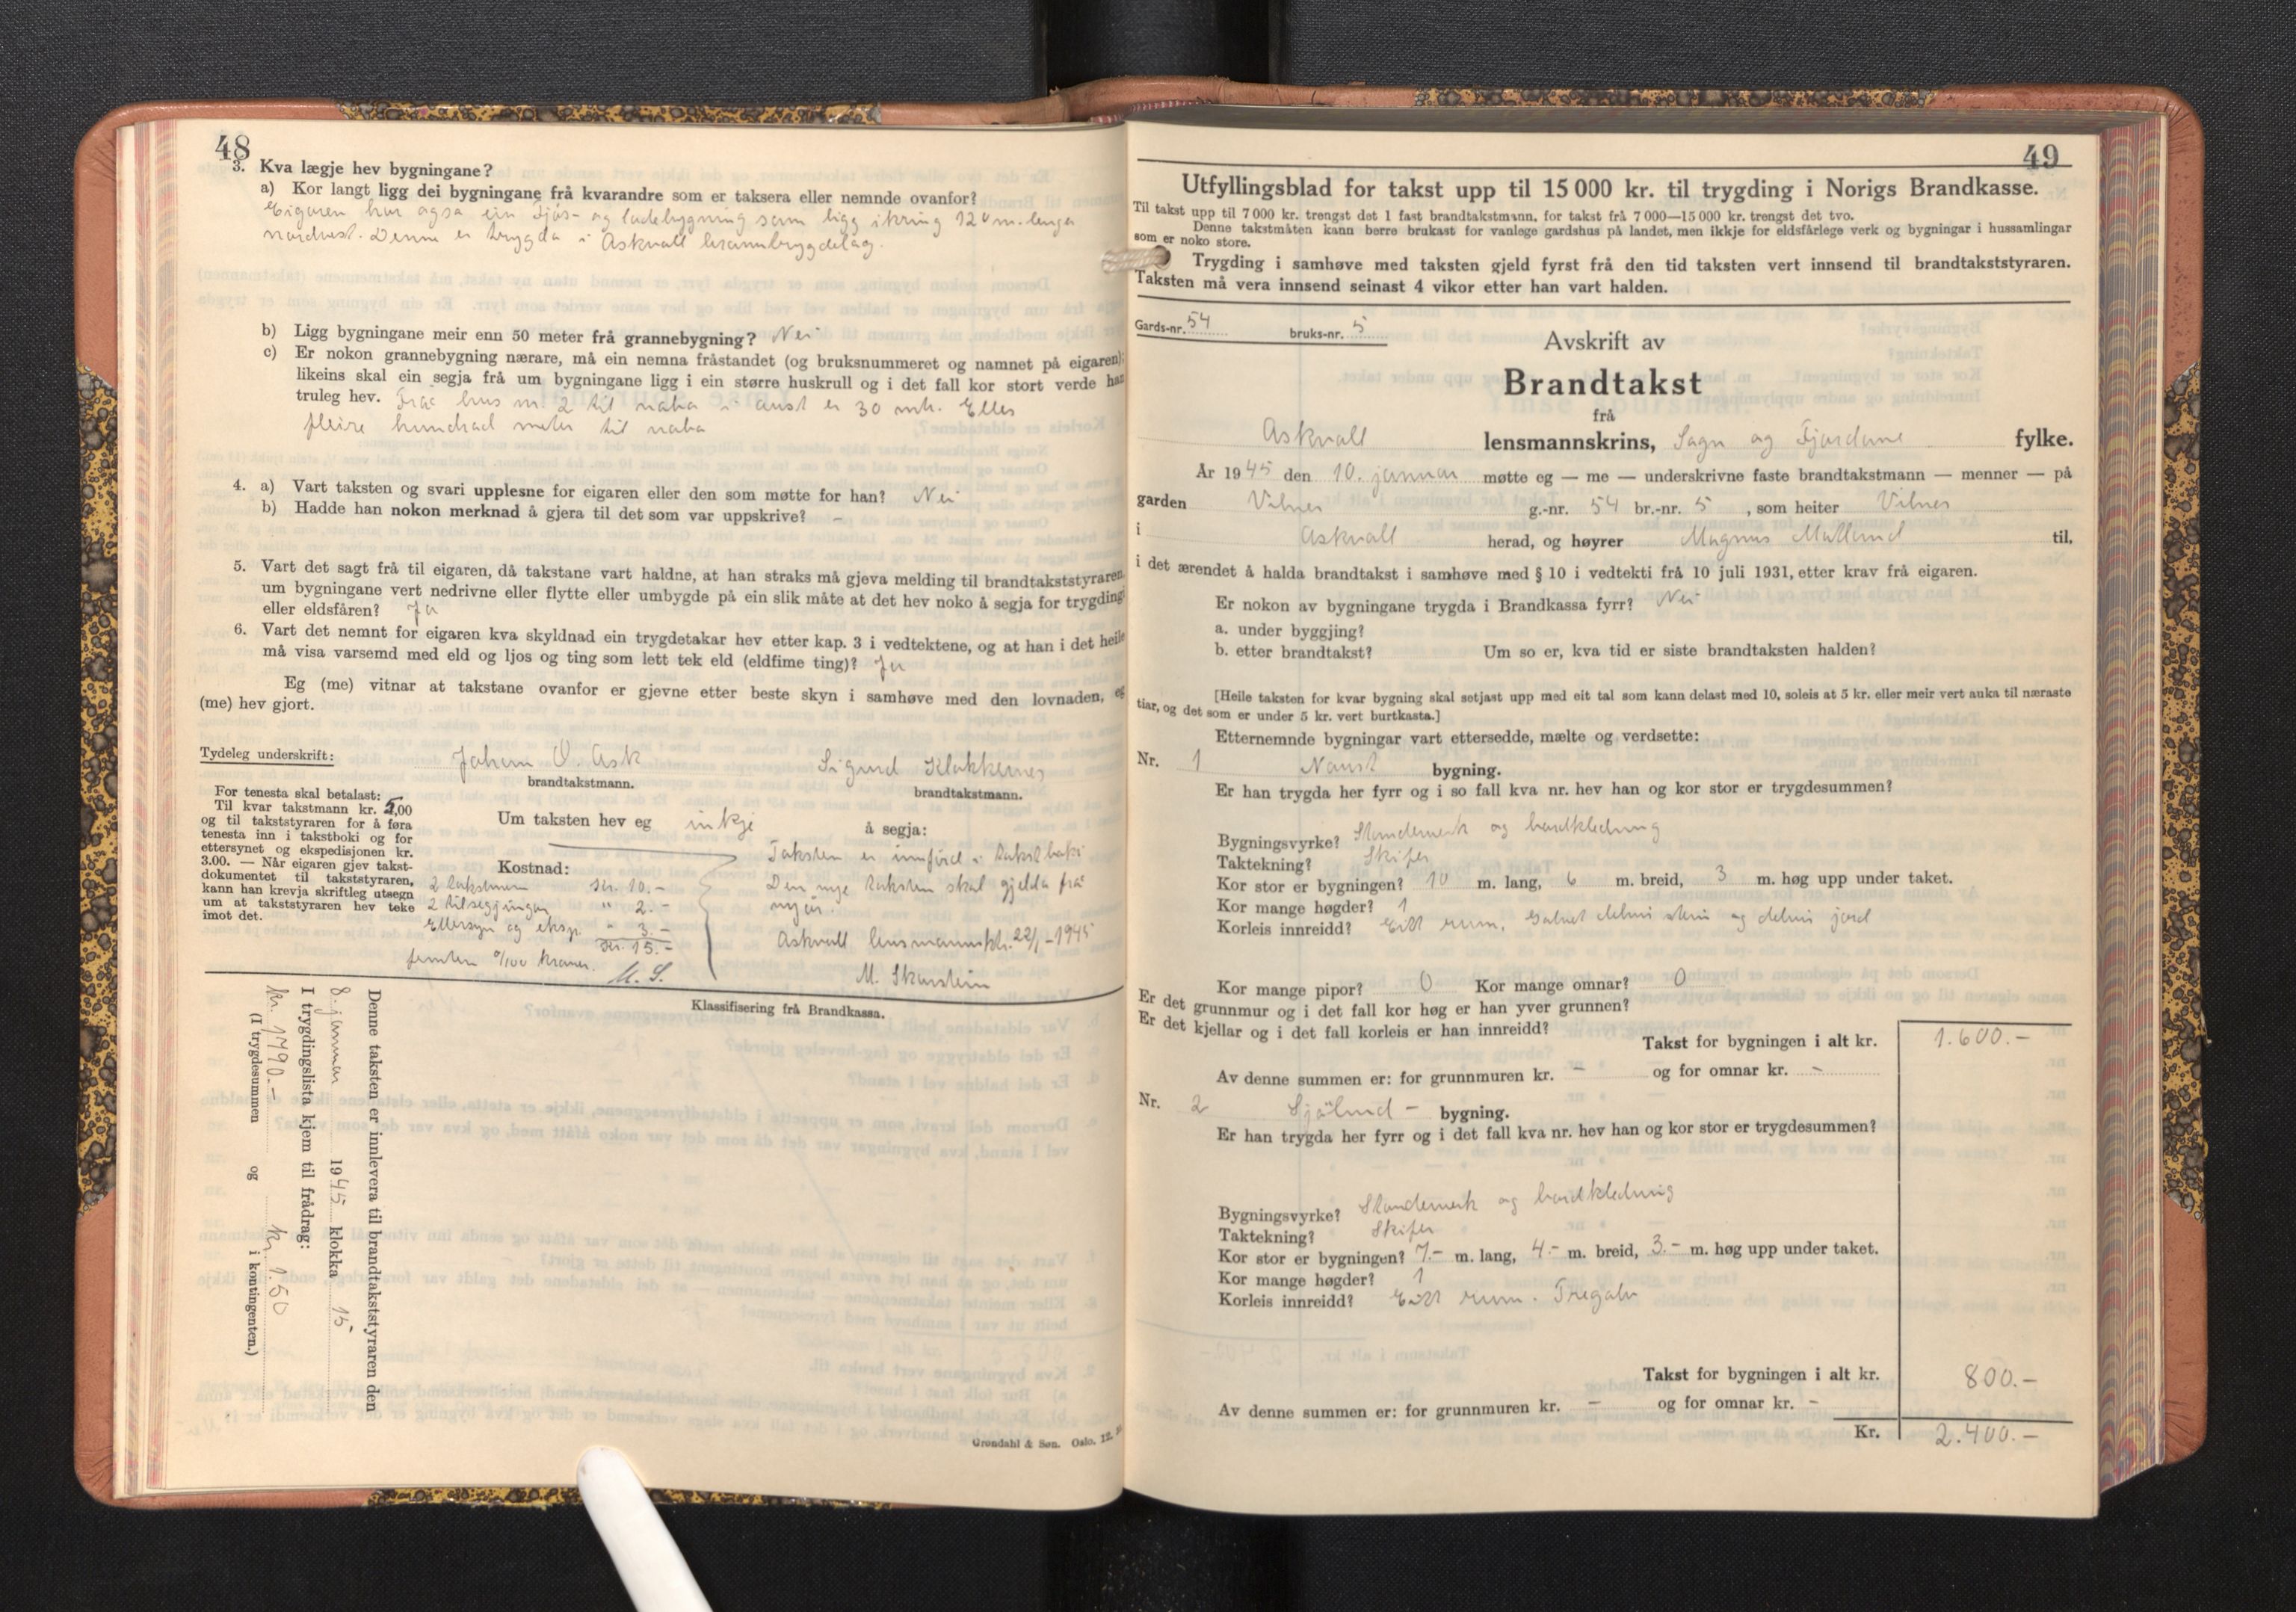 48
3. Kva lægje hev bygningane?
a) Kor langt ligg dei bygningane frå kvarandre som er taksera eller nemnde ovanfor?
Eigaren har også ein fjøs- og ladebygning som ligg ikring 120 m. lenga
nordvest. Denne er trygda i Askvoll brannbrygdelag.
b) Ligg bygningane meir enn 50 meter frå grannebygning? Nei
c) Er nokon grannebygning nærare, må ein nemna fråstandet (og bruksnummeret og namnet på eigaren);
likeins skal ein segja frå um bygningane ligg i ein større huskrull og i det fall kor stort verde han
truleg hev. Frå hus nr. 2 til nabo i aust er 30 mtr. Elles
fleire hundrad meter til nabo
4. a) Vart taksten og svari upplesne for eigaren eller den som møtte for han? Nei
b) Hadde han nokon merknad å gjera til det som var uppskrive? -
5. Vart det sagt frå til eigaren, då takstane vart haldne, at han straks må gjeva melding til brandtakststyraren,
um bygningane vert nedrivne eller flytte eller umbygde på ein slik måte at det hev noko å segja for trygdingi
eller eldsfåren? Ja
6. Vart det nemnt for eigaren kva skyldnad ein trygdetakar hev etter kap. 3 i vedtektene, og at han i det heile
må visa varsemd med eld og ljos og ting som lett tek eld (eldfime ting)? Ja
Eg (me) vitnar at takstane ovanfor er gjevne etter beste skyn i samhøve med den lovnaden, eg
(me) hev gjort.
Tydeleg underskrift: Johan O. Ask Sigurd Klakkernes
brandtakstmann. brandtakstmann.
For tenesta skal betalast:
Til kvar takstmann kr. 5,00
og til takststyraren for å føra
tenesta inn i takstboki og for
ettersynet og ekspedisjonen kr.
3.00. — Når eigaren gjev takst-
dokumentet til takststyraren,
kann han krevja skriftleg utsegn
um at takststyraren hev teke
imot det.
Um taksten hev eg inkje å segja:
Kostnad:
2 takstmenn kr. 10.-
2 tilsegjingar " 2.-
Ettersyn og eksp. " 3.-
kr. 15.-
femten 0/100 kroner.
M. S.
Taksten er innførd i takstboki
Den nye taksten skal gjelda frå
nyår.
Askvoll lensmannsktr. 22/1-1945
M. Skarstein
Klassifisering frå Brandkassa.
Denne taksten er innlevera til brandtakststyraren den
8. januar 1945 klokka 15
I trygdingslista kjem til frådrag:
kr. 1790.- og kr. 1.50
(I trygdesummen og i kontingenten.)
Grøndahl & Søn. Oslo. 12.
49
Utfyllingsblad for takst upp til 15 000 kr. til trygding i Norigs Brandkasse.
Til takst upp til 7 000 kr. trengst det 1 fast brandtakstmann, for takst frå 7 000—15 000 kr. trengst det tvo.
Denne takstmåten kann berre brukast for vanlege gardshus på landet, men ikkje for eldsfårlege verk og bygningar i hussamlingar
som er noko store.
Trygding i samhøve med taksten gjeld fyrst frå den tid taksten vert innsend til brandtakststyraren.
Taksten må vera innsend seinast 4 vikor etter han vart halden.
Gards-nr. 54 bruks-nr. 5
Avskrift av
Brandtakst
frå
Askvoll lensmannskrins, Sogn og Fjordane fylke.
År 1945 den 10. januar møtte eg — me — underskrivne faste brandtakstmann — menner — på
garden Vilnes g.-nr. 54 br.-nr. 5, som heiter Vilnes
i Askvoll herad, og høyrer Magnus Matland til,
i det ærendet å halda brandtakst i samhøve med § 10 i vedtekti frå 10 juli 1931, etter krav frå eigaren.
Er nokon av bygningane trygda i Brandkassa fyrr? Nei
a. under byggjing?
b. etter brandtakst? Um so er, kva tid er siste brandtaksten halden?
[Heile taksten for kvar bygning skal setjast upp med eit tal som kann delast med 10, soleis at 5 kr. eller meir vert auka til næraste
tiar, og det som er under 5 kr. vert burtkasta.]
Etternemnde bygningar vart ettersedde, mælte og verdsette:
Nr. 1 Naust bygning.
Er han trygda her fyrr og i so fall kva nr. hev han og kor stor er trygdesummen?
Bygningsvyrke? Standerverk og bordkledning
Taktekning? Skifer
Kor stor er bygningen? 10 m. lang, 6 m. breid, 3 m. høg upp under taket.
Kor mange høgder? 1
Korleis innreidd? Eitt rum, Golvet delvis stein og delvis jord
Kor mange pipor? 0 Kor mange omnar? 0
Er det grunnmur og i det fall kor høg er han yver grunnen?
Er det kjellar og i det fall korleis er han innreidd?
Takst for bygningen i alt kr. 1.600.-
Av denne summen er: for grunnmuren kr. - og for omnar kr. -
Nr. 2 Sjøbud- bygning.
Er han trygda her fyrr og i det fall kva nr. hev han og kor stor er trygdesummen?
Bygningsvyrke? Standerverk og bordkledning
Taktekning? Skifer
Kor stor er bygningen? 7.- m. lang, 4.- m. breid, 3.- m. høg upp under taket.
Kor mange høgder? 1
Korleis innreidd? Eitt rum. Tregolv
Takst for bygningen i alt kr. 800.-
Av denne summen er: for grunnmuren kr. - og for omnar kr. -
Kr. 2.400.-